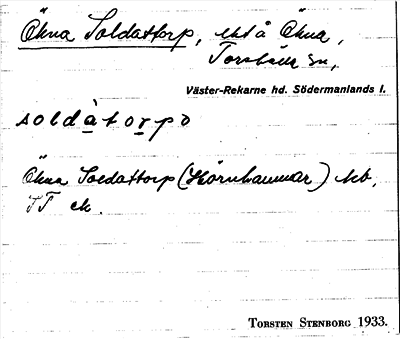 Ökna Soldattorp, utå Ökna,
Torshälla sn,
Väster-Rekarne hd. Södermanlands l.
soldàtorpə
Ökna Soldattorp (Hörnhammar) kb,
JJ ek.
TORSTEN STENBORG 1933.